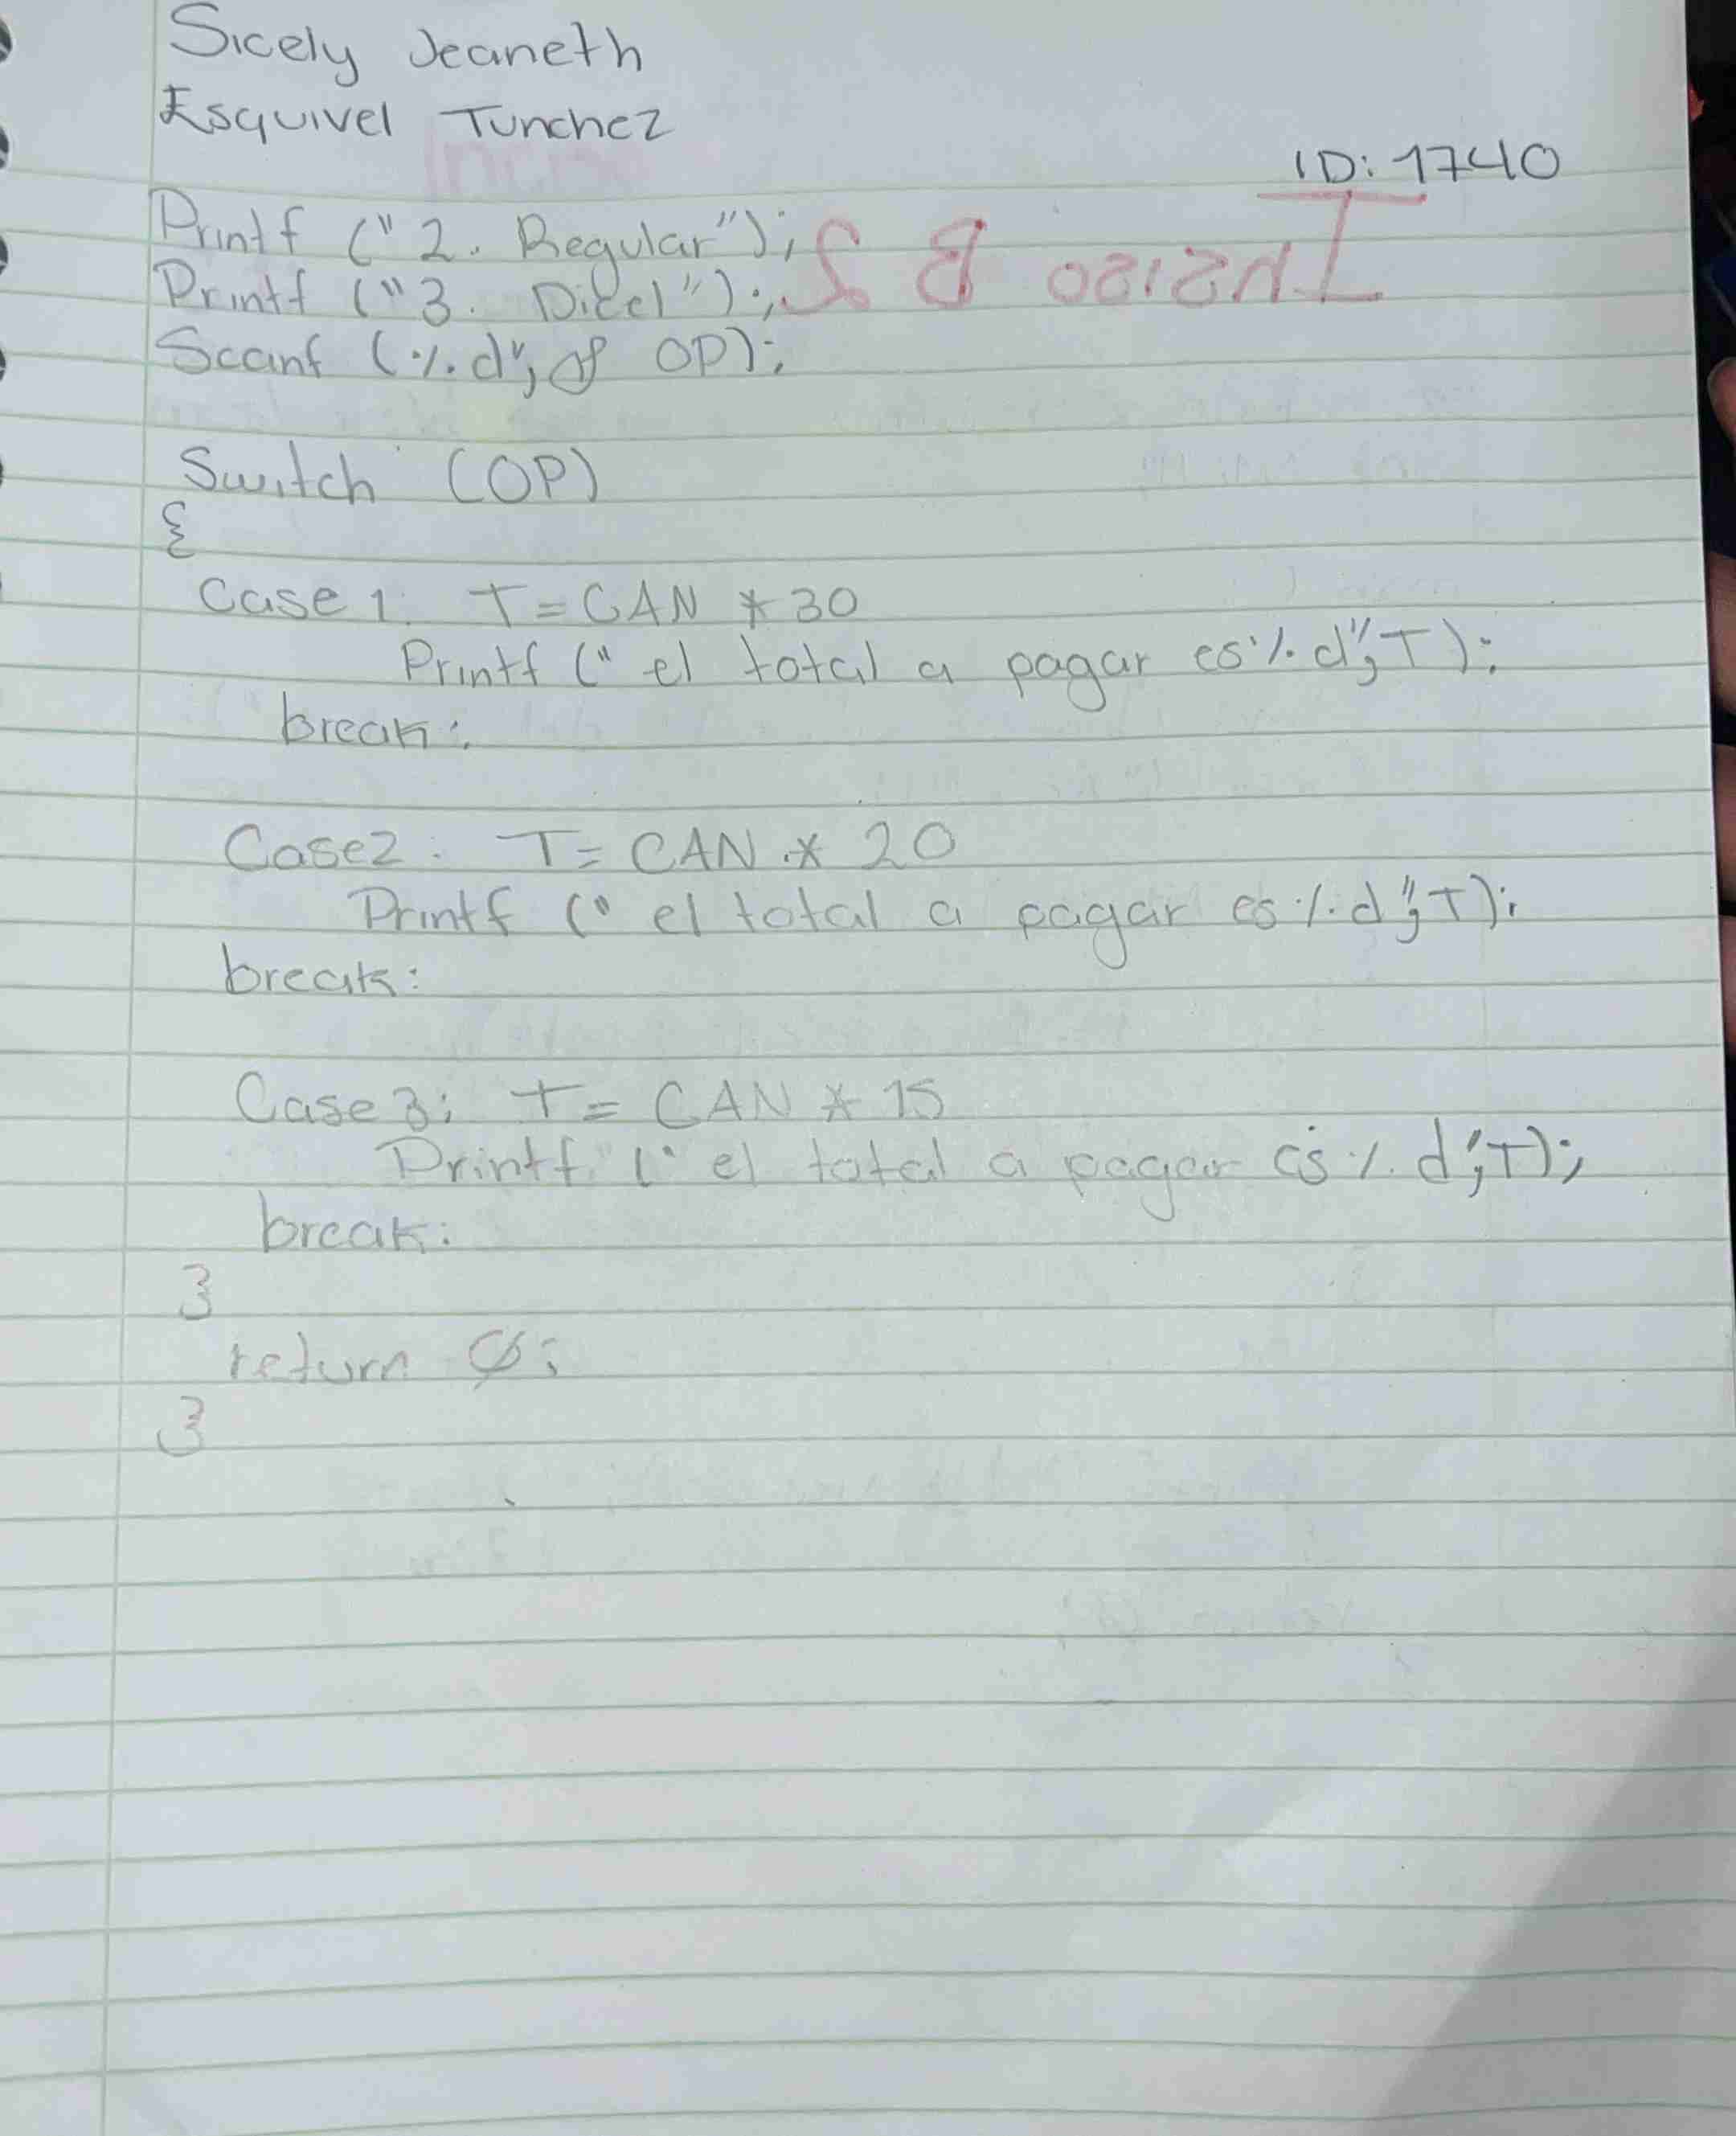 Sicely Jeaneth
Esquivel Tunchez
ID: 1740
Printf ("2. Regular");
Printf ("3. Dicel");
Scanf (%d", & OP);
Switch (OP)
{
Case 1: T = CAN * 30
Printf (" el total a pagar es %d", T);
break;
Case2: T = CAN * 20
Printf (" el total a pagar es %d", T);
break:
Case 3: T = CAN * 15
Printf (" el total a pagar es % d", T);
break:
}
return 0;
}